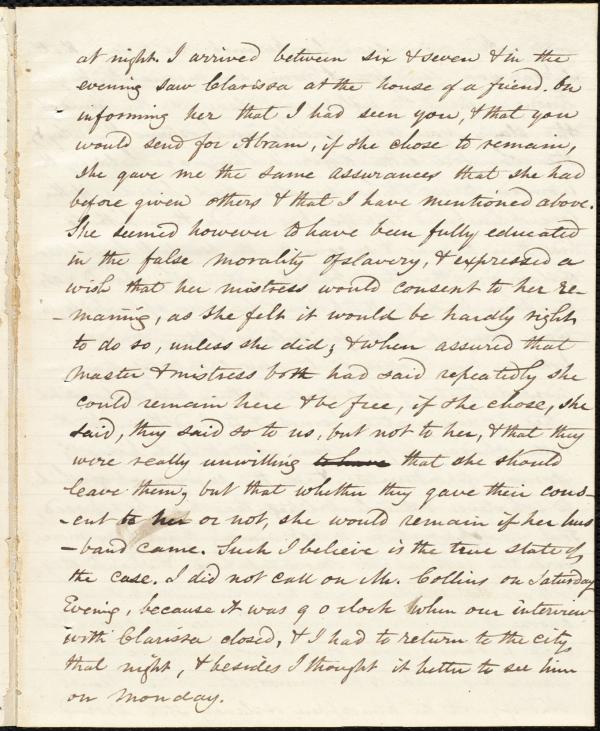 at night. I arrived between six & seven & in the
evening saw Clarissa at the house of a friend. On
informing her that I had seen you, & that you
would send for Abram, if she chose to remain,
she gave me the same assurances that she had
before given others & that I have mentioned above.
She seemed however to have been fully educated
in the false morality of slavery, & expressed a
wish that her mistress would consent to her re-
-maining, as she felt it would be hardly right
to do so, unless she did; & when assured that
master & mistress both had said repeatedly she
could remain here & be free, if she chose, she
said, they said so to us, but not to her, & that they
were really unwilling to have that she should
leave them, but that whether they gave their cons-
-ent to her or not, she would remain if her hus
-band came. Such I believe is the true state of
the case. I did not call on Mr. Collins on Saturday
Evening, because it was 9 o clock when our interview
with Clarissa closed, & I had to return to the city
that night, & besides I thought it better to see him
on Monday.